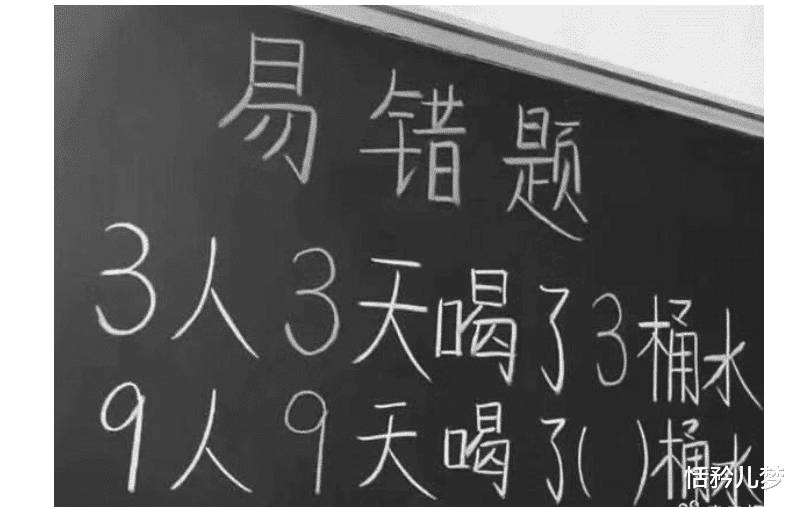 易错题
3人3天喝了3桶水
9人9天喝了( )桶水
恬矜儿梦